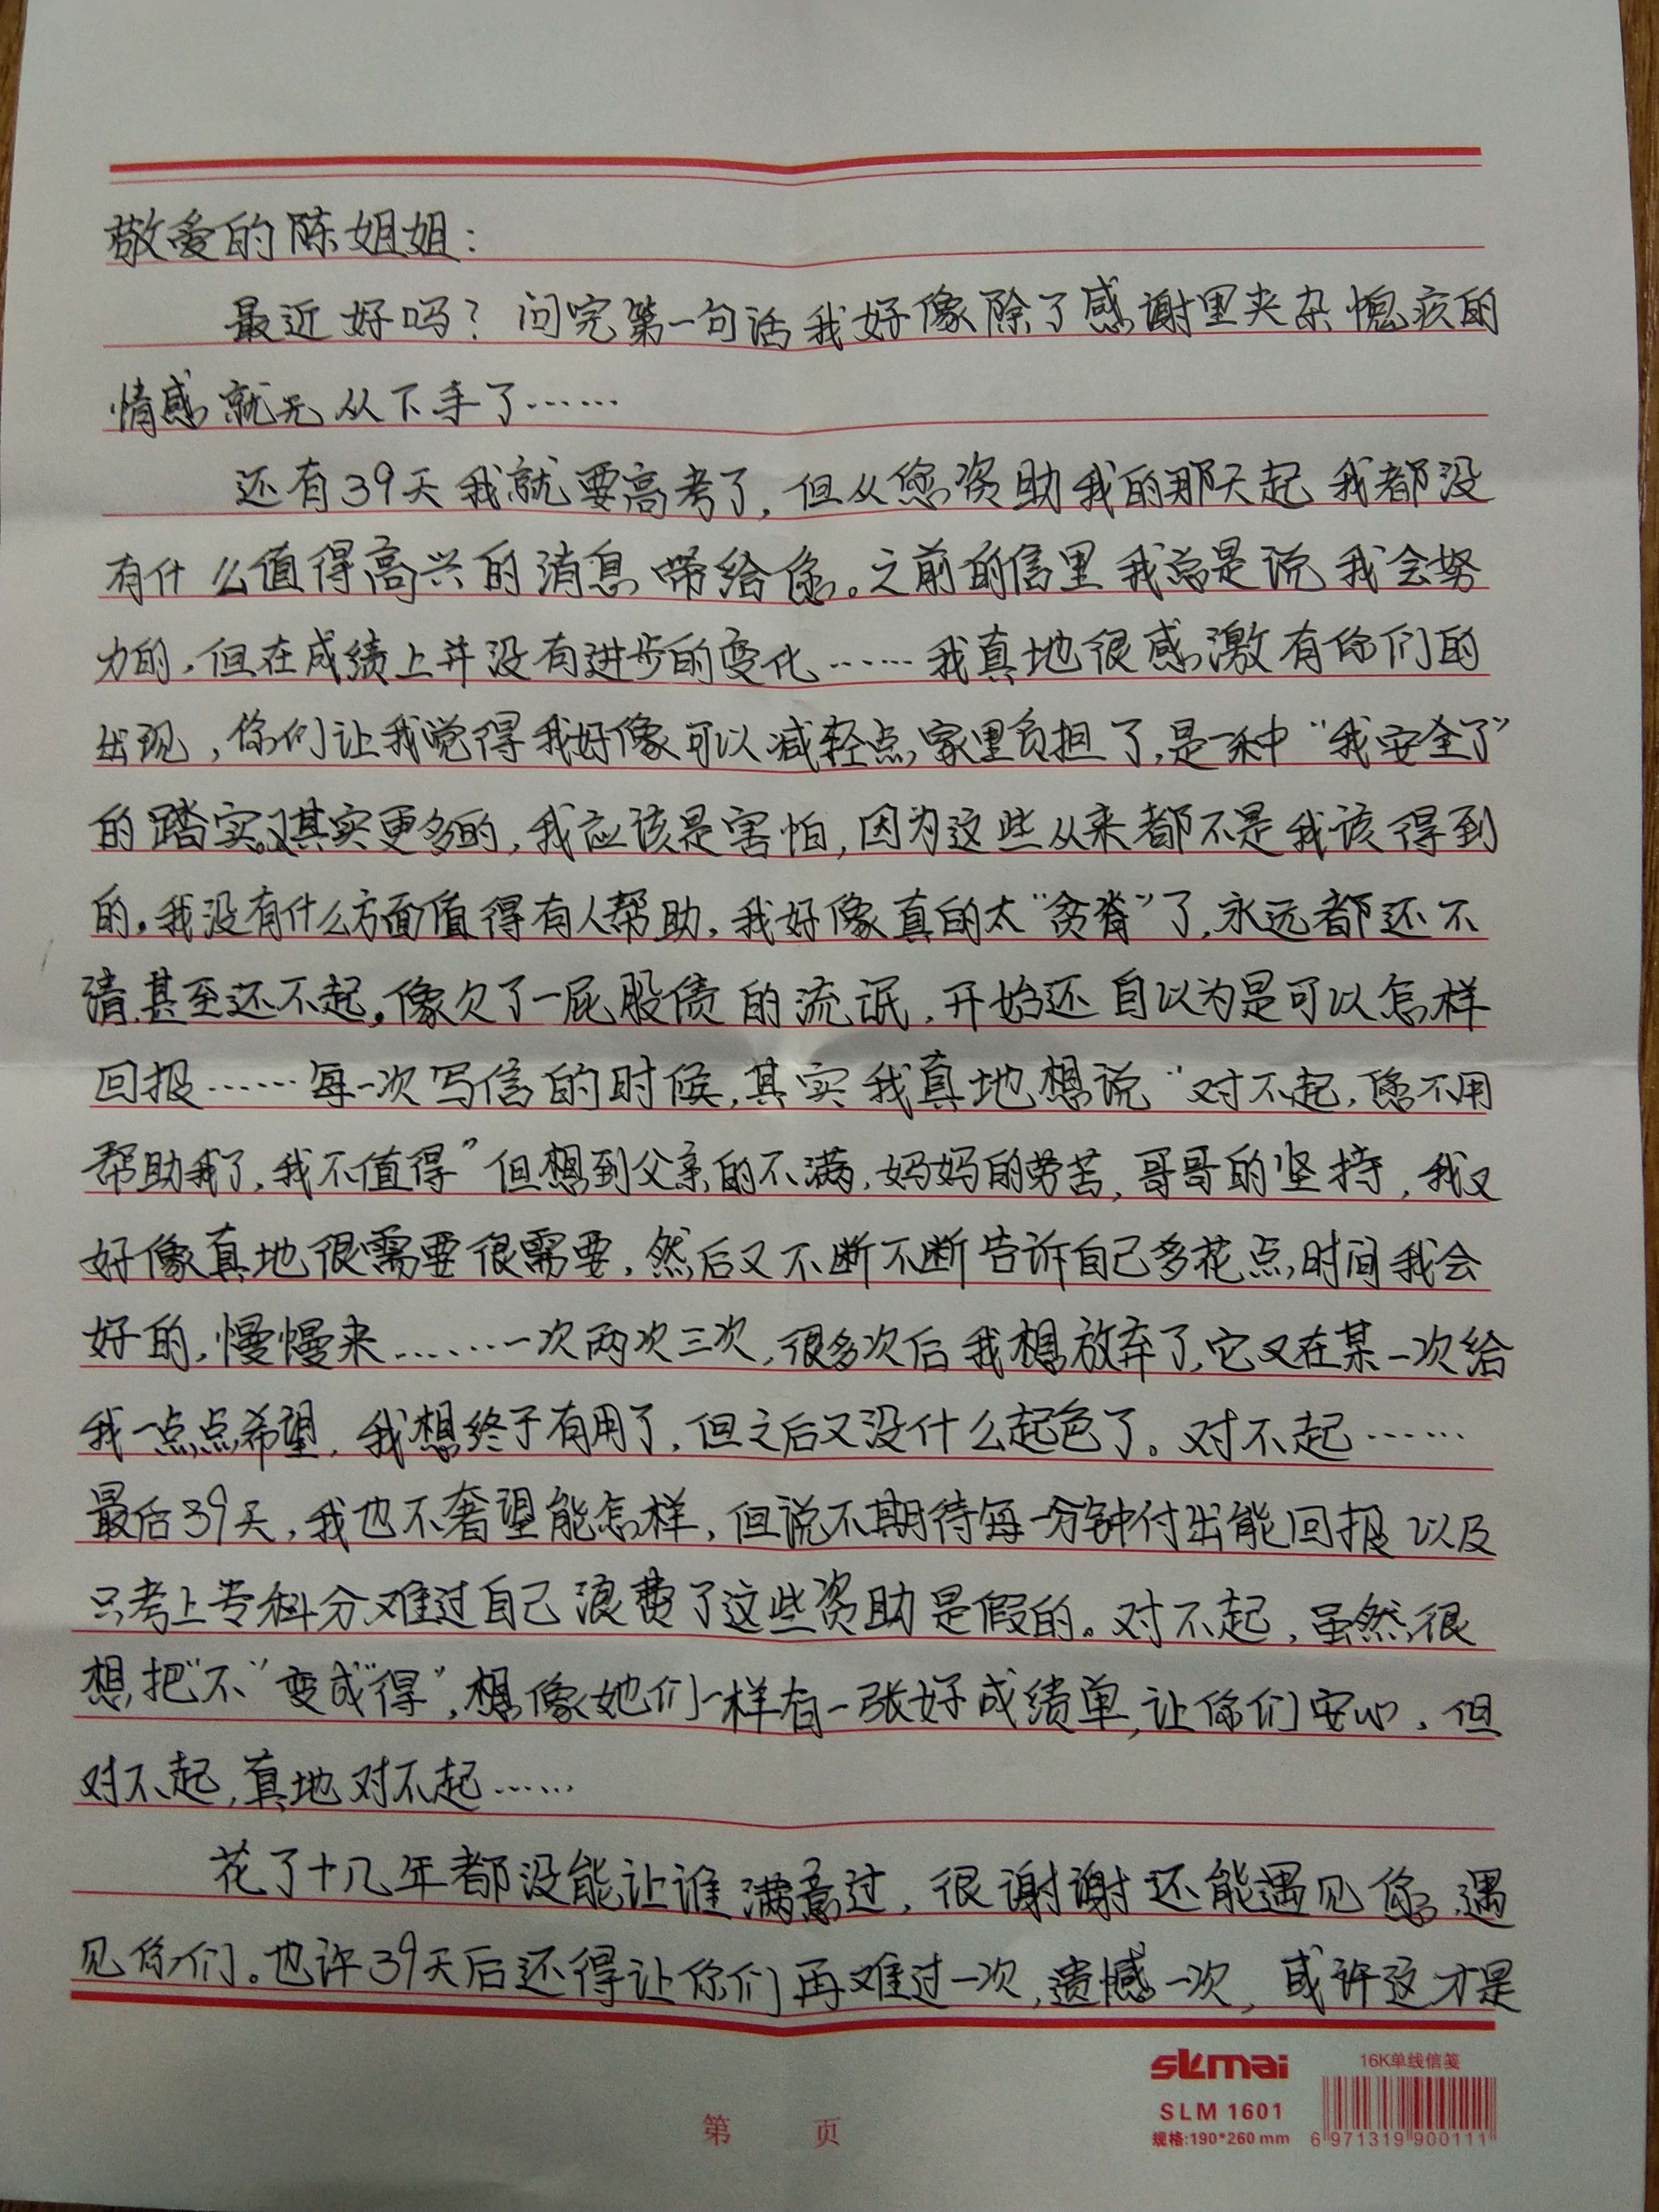 敬爱的陈姐姐：
最近好吗？问完第一句话我好像除了感谢里夹杂愧疚的
情感就无从下手了……
还有39天我就要高考了，但从您资助我的那天起我都没
有什么值得高兴的消息带给您。之前的信里我总是说我会努
力的，但在成绩上并没有进步的变化……我真地很感激有你们的
出现，你们让我觉得我好像可以减轻点家里负担了，是一种“我安全了”
的踏实。其实更多的，我应该是害怕，因为这些从来都不是我该得到
的。我没有什么方面值得有人帮助，我好像真的太“贫脊”了，永远都还不
清，甚至还不起。像欠了一屁股债的流氓，开始还自以为是可以怎样
回报……每一次写信的时候，其实我真地想说“对不起，您不用
帮助我了，我不值得”但想到父亲的不满，妈妈的劳苦，哥哥的坚持，我又
好像真地很需要很需要，然后又不断不断告诉自己多花点时间我会
好的，慢慢来……一次两次三次，很多次后我想放弃了，它又在某一次给
我一点点希望，我想终于有用了，但之后又没什么起色了。对不起……
最后39天，我也不奢望能怎样，但说不期待每一分钟付出能回报以及
只考上专科分难过自己浪费了这些资助是假的。对不起，虽然很
想把“不”变成“得”，想像她们一样有一张好成绩单，让你们安心，但
对不起，真地对不起……
花了十几年都没能让谁满意过，很谢谢还能遇见您，遇
见你们。也许39天后还得让你们再难过一次，遗憾一次，或许这才是
skmai
16K单线信笺
SLM 1601
规格:190*260mm
6 971319 900111
第 页